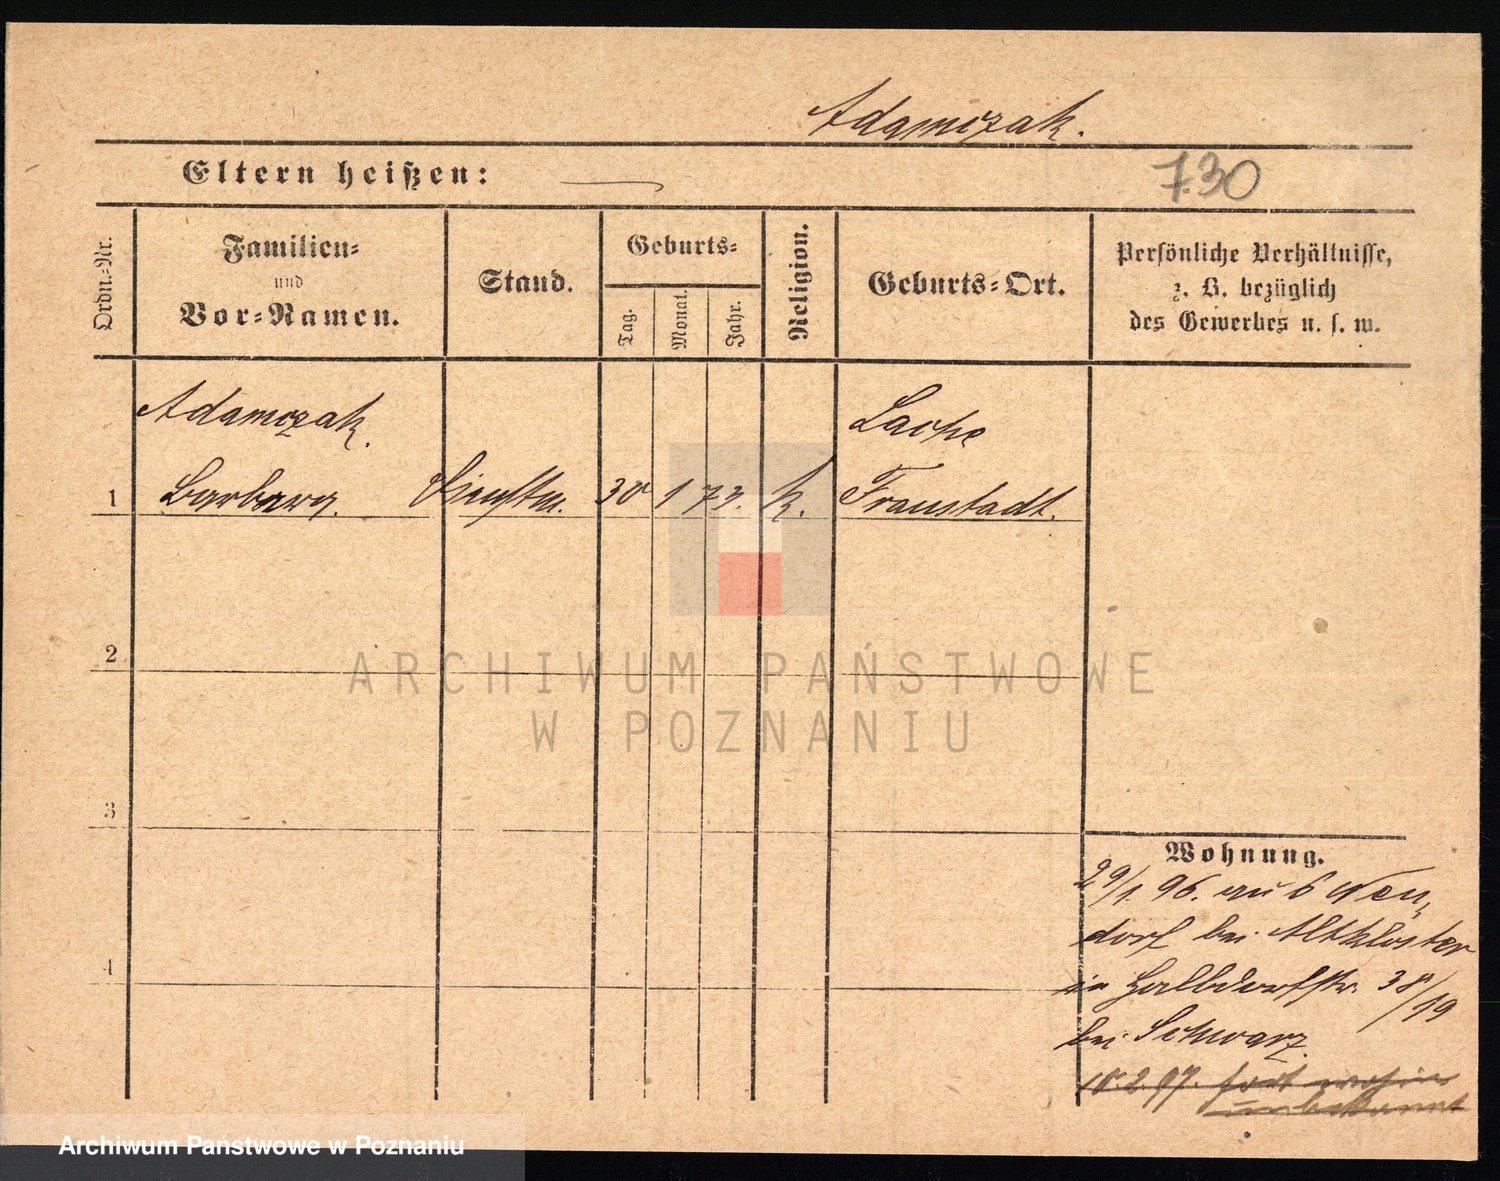 Adamczak.
Eltern heißen: —
730
Ordn.-Nr.
Familien-
und
Vor-Namen.
Stand.
Geburts-
Tag.
Monat.
Jahr.
Religion.
Geburts-Ort.
Persönliche Verhältnisse,
z. B. bezüglich
des Gewerbes u. s. w.
Adamczak.
Lache
1 Barbara. Dienstm. 30 1 73. k. Fraustadt.
2
ARCHIWUM PAŃSTWOWE
W POZNANIU
3
Wohnung.
29/1. 96. aus Neu-
dorf bei Altkloster
4
in Halbdorfstr. 38/19
bei Schwarz
10.2.97. fort wohin
unbekannt
Archiwum Państwowe w Poznaniu